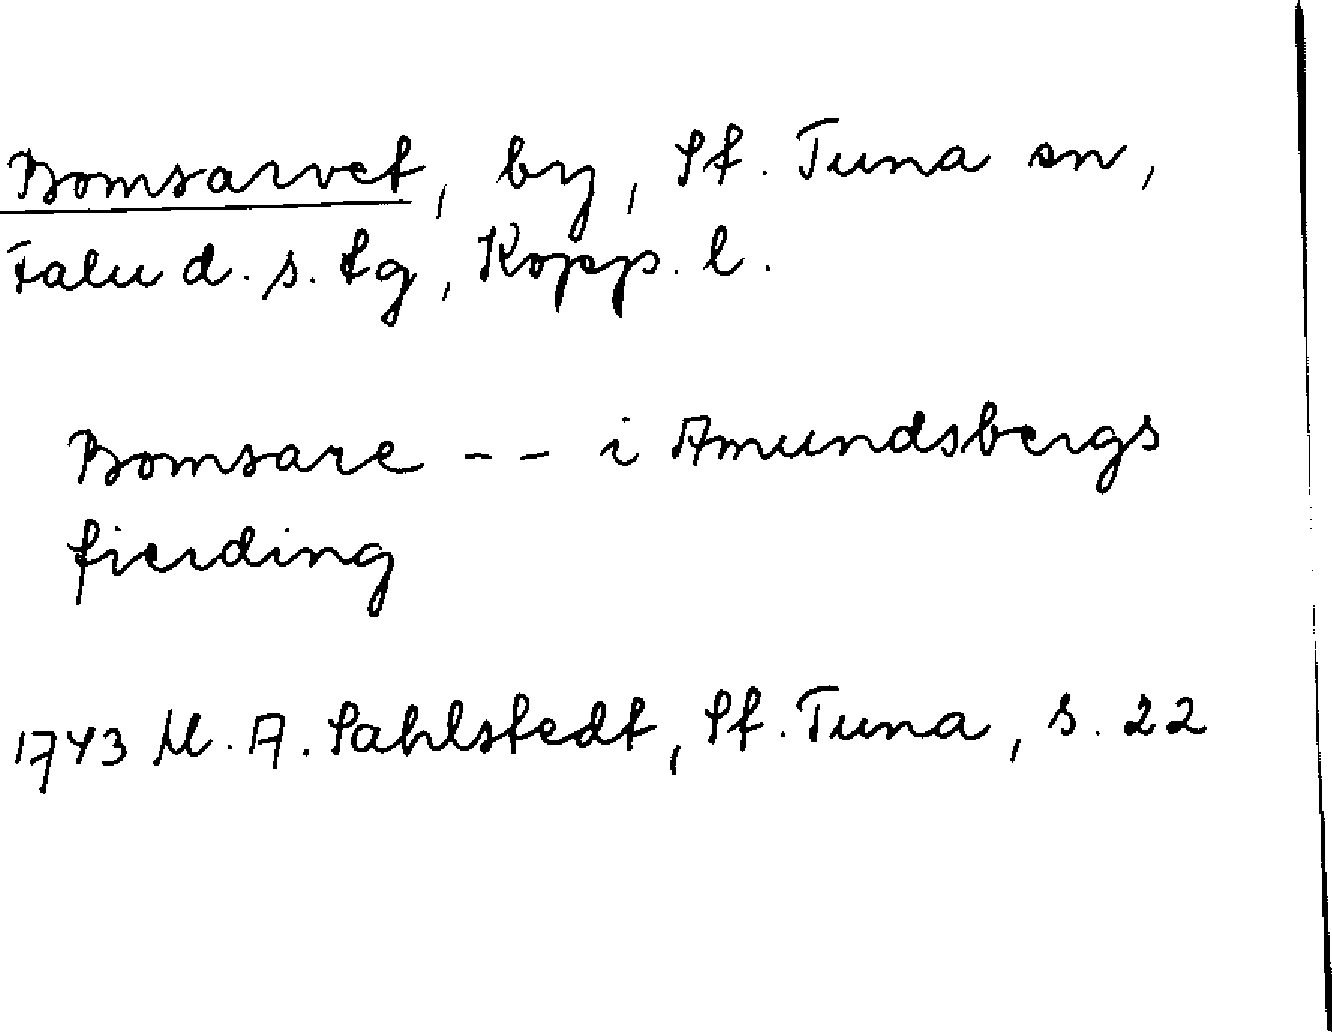 Bomsarvet, by, St. Tuna sn,
Falu d. s. tg, Kopp. l.
Bomsare - - i Amundsbergs
fierding
1743 M. A. Sahlstedt, St. Tuna, s. 22